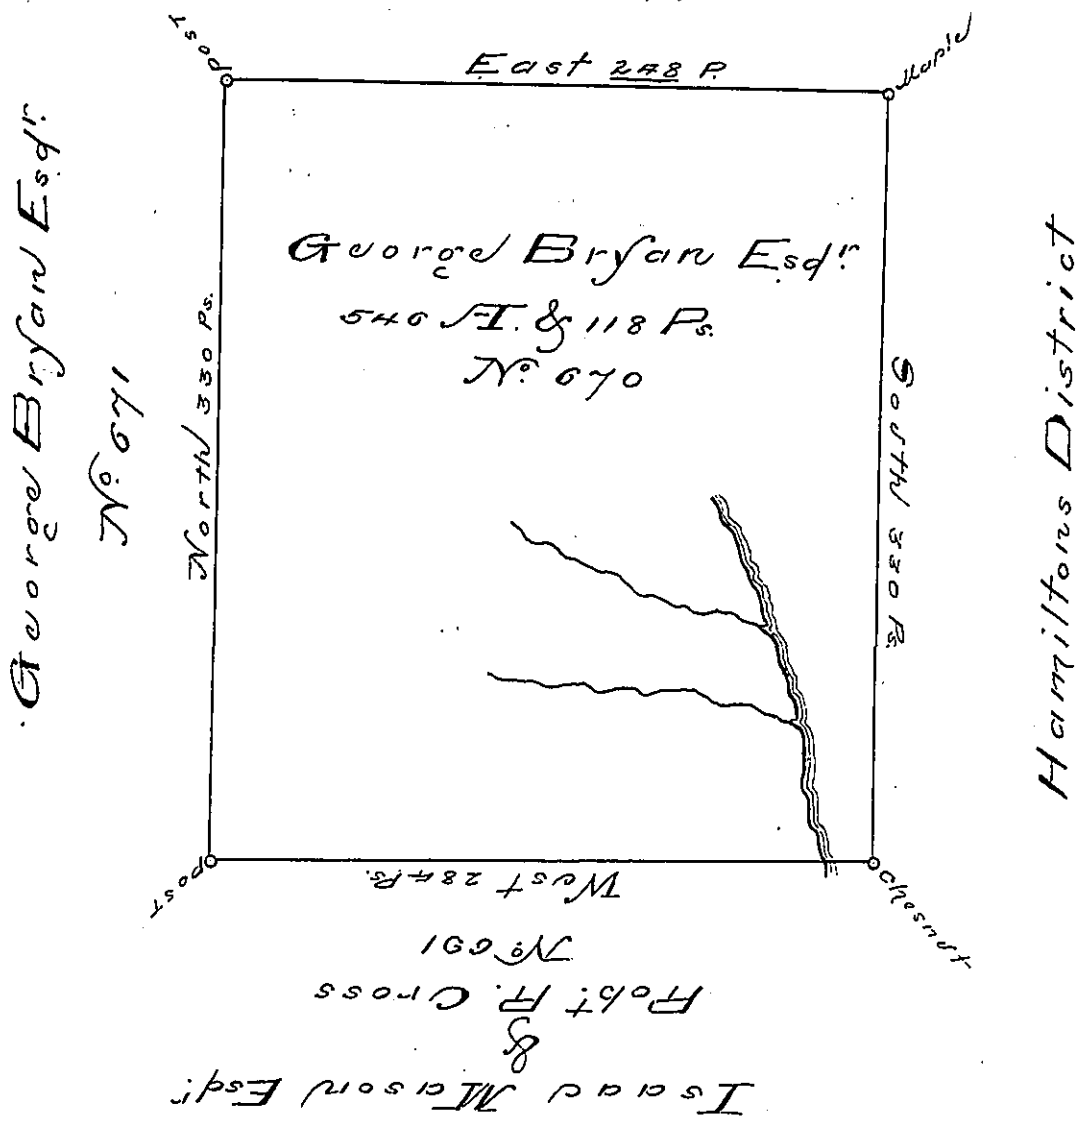 Post
East 248 P.
Maple
George Bryan Esqr.
546 A. & 118 Ps.
No. 670
George Bryan Esqr.
No. 671
North 330 Ps.
South 330 Ps.
Hamiltons District
Post
West 284 Ps.
Chesnutt
No. 691
Robt. R. Cross
&
Isaac Mason Esqr.